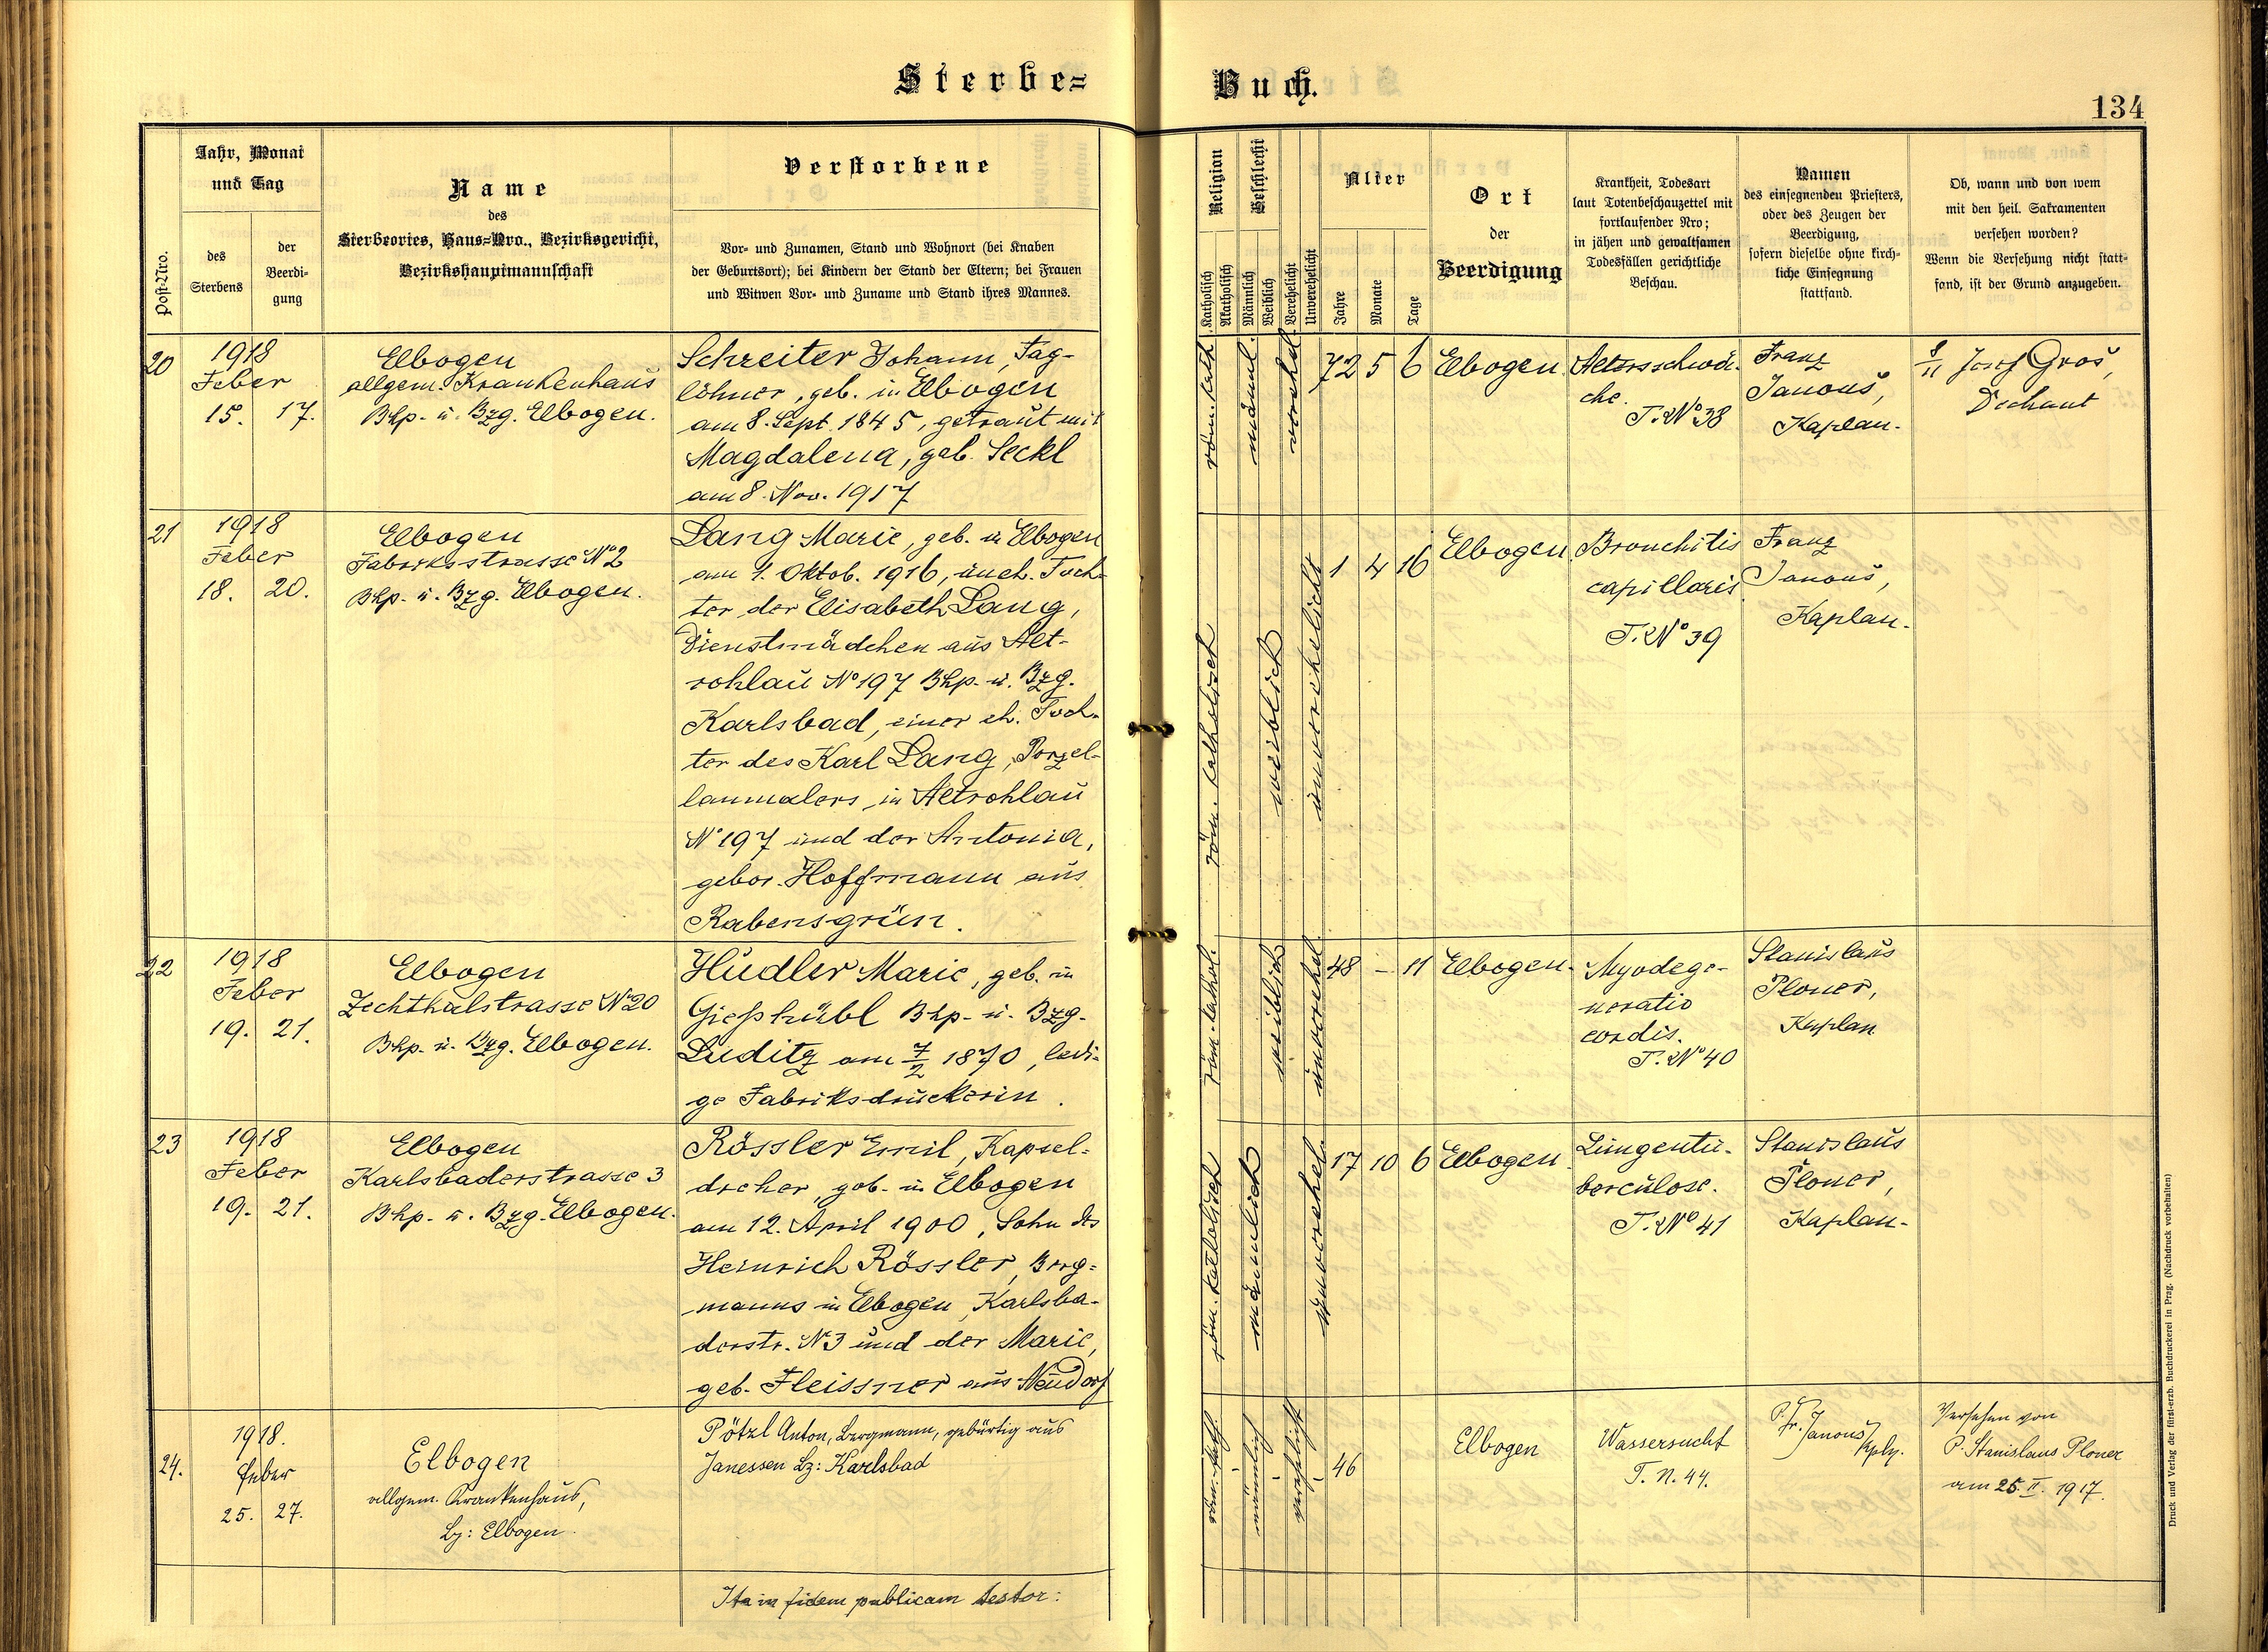 Sterbe=
Buch.
134
Post-Nro.
Jahr, Monat
und Tag
des
Sterbens
der
Beerdi-
gung
Name
des
Sterbeortes, Haus-Nro., Bezirksgericht,
Bezirkshauptmannschaft
Verstorbene
Vor- und Zunamen, Stand und Wohnort (bei Knaben
der Geburtsort); bei Kindern der Stand der Eltern; bei Frauen
und Witwen Vor- und Zuname und Stand ihres Mannes.
Religion
Katholisch
Akatholisch
Geschlecht
Männlich
Weiblich
Verehelicht
Unverehelicht
Alter
Jahre
Monate
Tage
Ort
der
Beerdigung
Krankheit, Todesart
laut Totenbeschauzettel mit
fortlaufender Nro;
in jähen und gewaltsamen
Todesfällen gerichtliche
Beschau.
Namen
des einsegnenden Priesters,
oder des Zeugen der
Beerdigung,
sofern dieselbe ohne kirch-
liche Einsegnung
stattfand.
Ob, wann und von wem
mit den heil. Sakramenten
versehen worden?
Wenn die Versehung nicht statt-
fand, ist der Grund anzugeben.
20
1918
Feber
15. 17.
Elbogen
allgem. Krankenhaus
Bhp. u. Bzg. Elbogen.
Schreiter Johann, Tag-
löhner, geb. in Elbogen
am 8. Sept. 1845, getraut mit
Magdalena, geb. Seckl
am 8. Nov. 1917
röm. kath.
männl.
verehel.
72 5 6
Elbogen.
Altersschwä-
che.
T. No 38
Franz
Janouš,
Kaplan.
8/11 Josef Groš,
Dechant
21
1918
Feber
18. 20.
Elbogen
Fabriksstrasse No 2
Bhp. u. Bzg. Elbogen.
Lang Marie, geb. in Elbogen
am 1. Oktob. 1916, uneh. Toch-
ter der Elisabeth Lang,
Dienstmädchen aus Alt-
rohlau No 197 Bhp. u. Bzg.
Karlsbad, einer eh. Toch-
ter des Karl Lang, Porzel-
lanmalers in Altrohlau
No 197 und der Antonia,
gebor. Hoffmann aus
Rabensgrün.
röm. katholisch
weiblich
unverehelicht
1 4 16
Elbogen.
Bronchitis
capillaris
T. No 39
Franz
Janouš,
Kaplan.
22
1918
Feber
19. 21.
Elbogen
Zechthalstrasse No 20
Bhp. u. Bzg. Elbogen.
Hudler Marie, geb. in
Gießhübl Bhp. u. Bzg.
Luditz am 7/2 1870, ledi-
ge Fabriksdruckerin.
röm. kathol.
weiblich
unverehel.
48 – 11
Elbogen.
Myodege-
neratio
cordis.
T. No 40
Stanislaus
Ploner,
Kaplan
23
1918
Feber
19. 21.
Elbogen
Karlsbaderstrasse 3
Bhp. u. Bzg. Elbogen.
Rössler Emil, Kapsel-
dreher, geb. in Elbogen
am 12. April 1900, Sohn des
Heinrich Rössler, Berg-
manns in Elbogen, Karlsba-
derstr. No 3 und der Marie,
geb. Fleissner aus Neudorf
röm. katholisch
männlich
unverehel.
17 10 6
Elbogen.
Lungentu-
berculose.
T. No 41
Stanislaus
Ploner,
Kaplan.
24.
1918.
Feber
25. 27.
Elbogen
allgem. Krankenhaus,
Bz: Elbogen.
Pötzl Anton, Bergmann, gebürtig aus
Janessen Bz: Karlsbad
röm.-kath.
männlich
verehlicht
46
Elbogen
Wassersucht
T. N. 44.
P. Fr. Janouš
Kpln.
Versehen von
P. Stanislaus Ploner
am 25. II. 1917.
Ita in fidem publicam testor:
Druck und Verlag der fürst-erzb. Buchdruckerei in Prag. (Nachdruck vorbehalten)